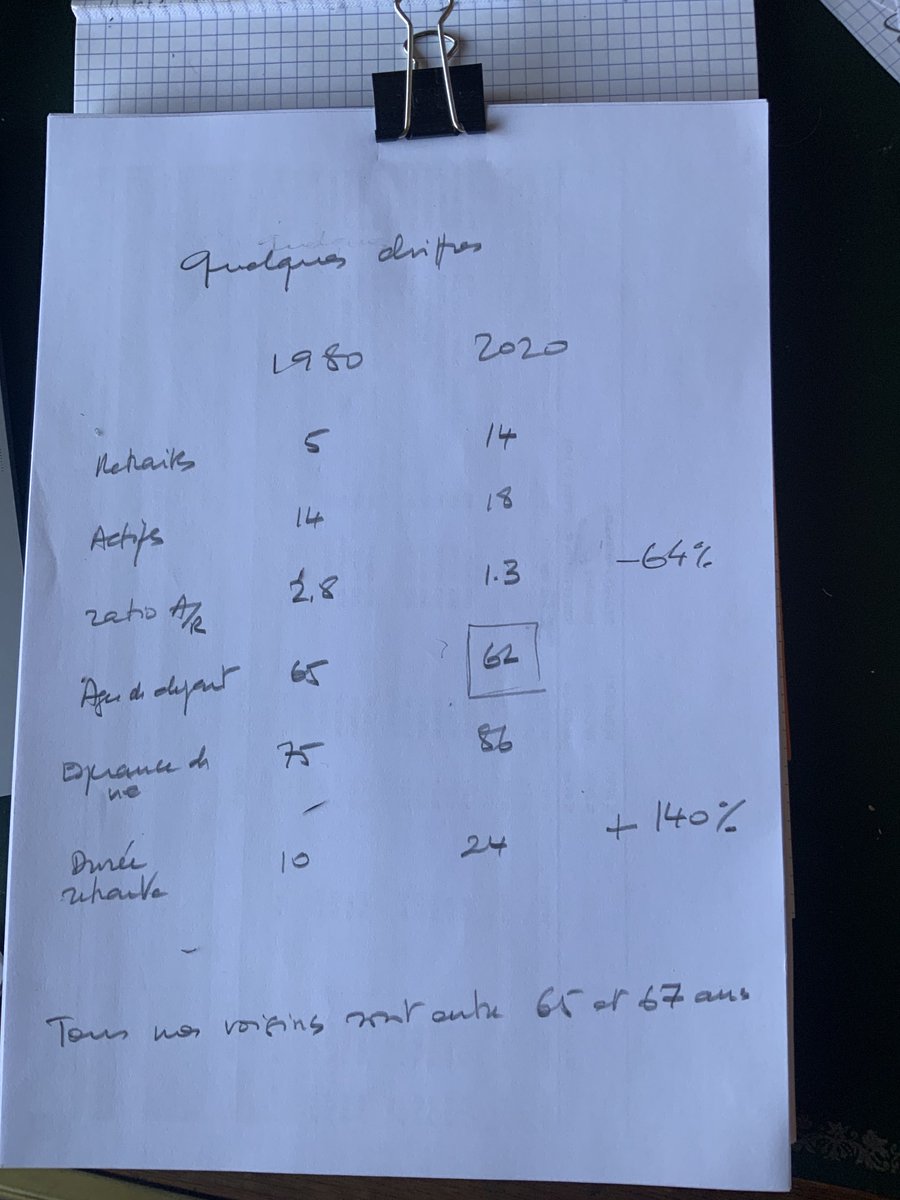 Quelques chiffres
1980 2020
Retraités 5 14
Actifs 14 18
ratio A/R 2,8 1.3 -64%
Age de départ 65 62
Espérance de vie 75 86
Durée retraite 10 24 + 140%
Tous nos voisins sont entre 65 et 67 ans